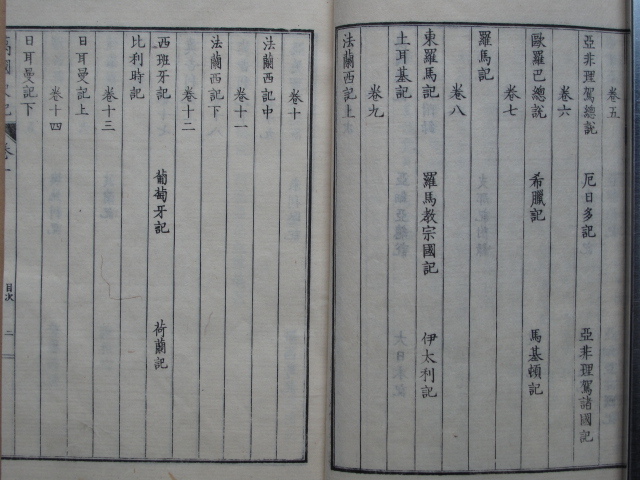 卷五
亞非理駕總說 厄日多記 亞非理駕諸國記
卷六
歐羅巴總說 希臘記 馬基頓記
卷七
羅馬記
卷八
東羅馬記 羅馬教宗國記 伊太利記
土耳基記
卷九
法蘭西記上
卷十
法蘭西記中
卷十一
法蘭西記下
卷十二
西班牙記 葡萄牙記 荷蘭記
比利時記
卷十三
日耳曼記上
卷十四
日耳曼記下
萬國史記 卷一 目次 二